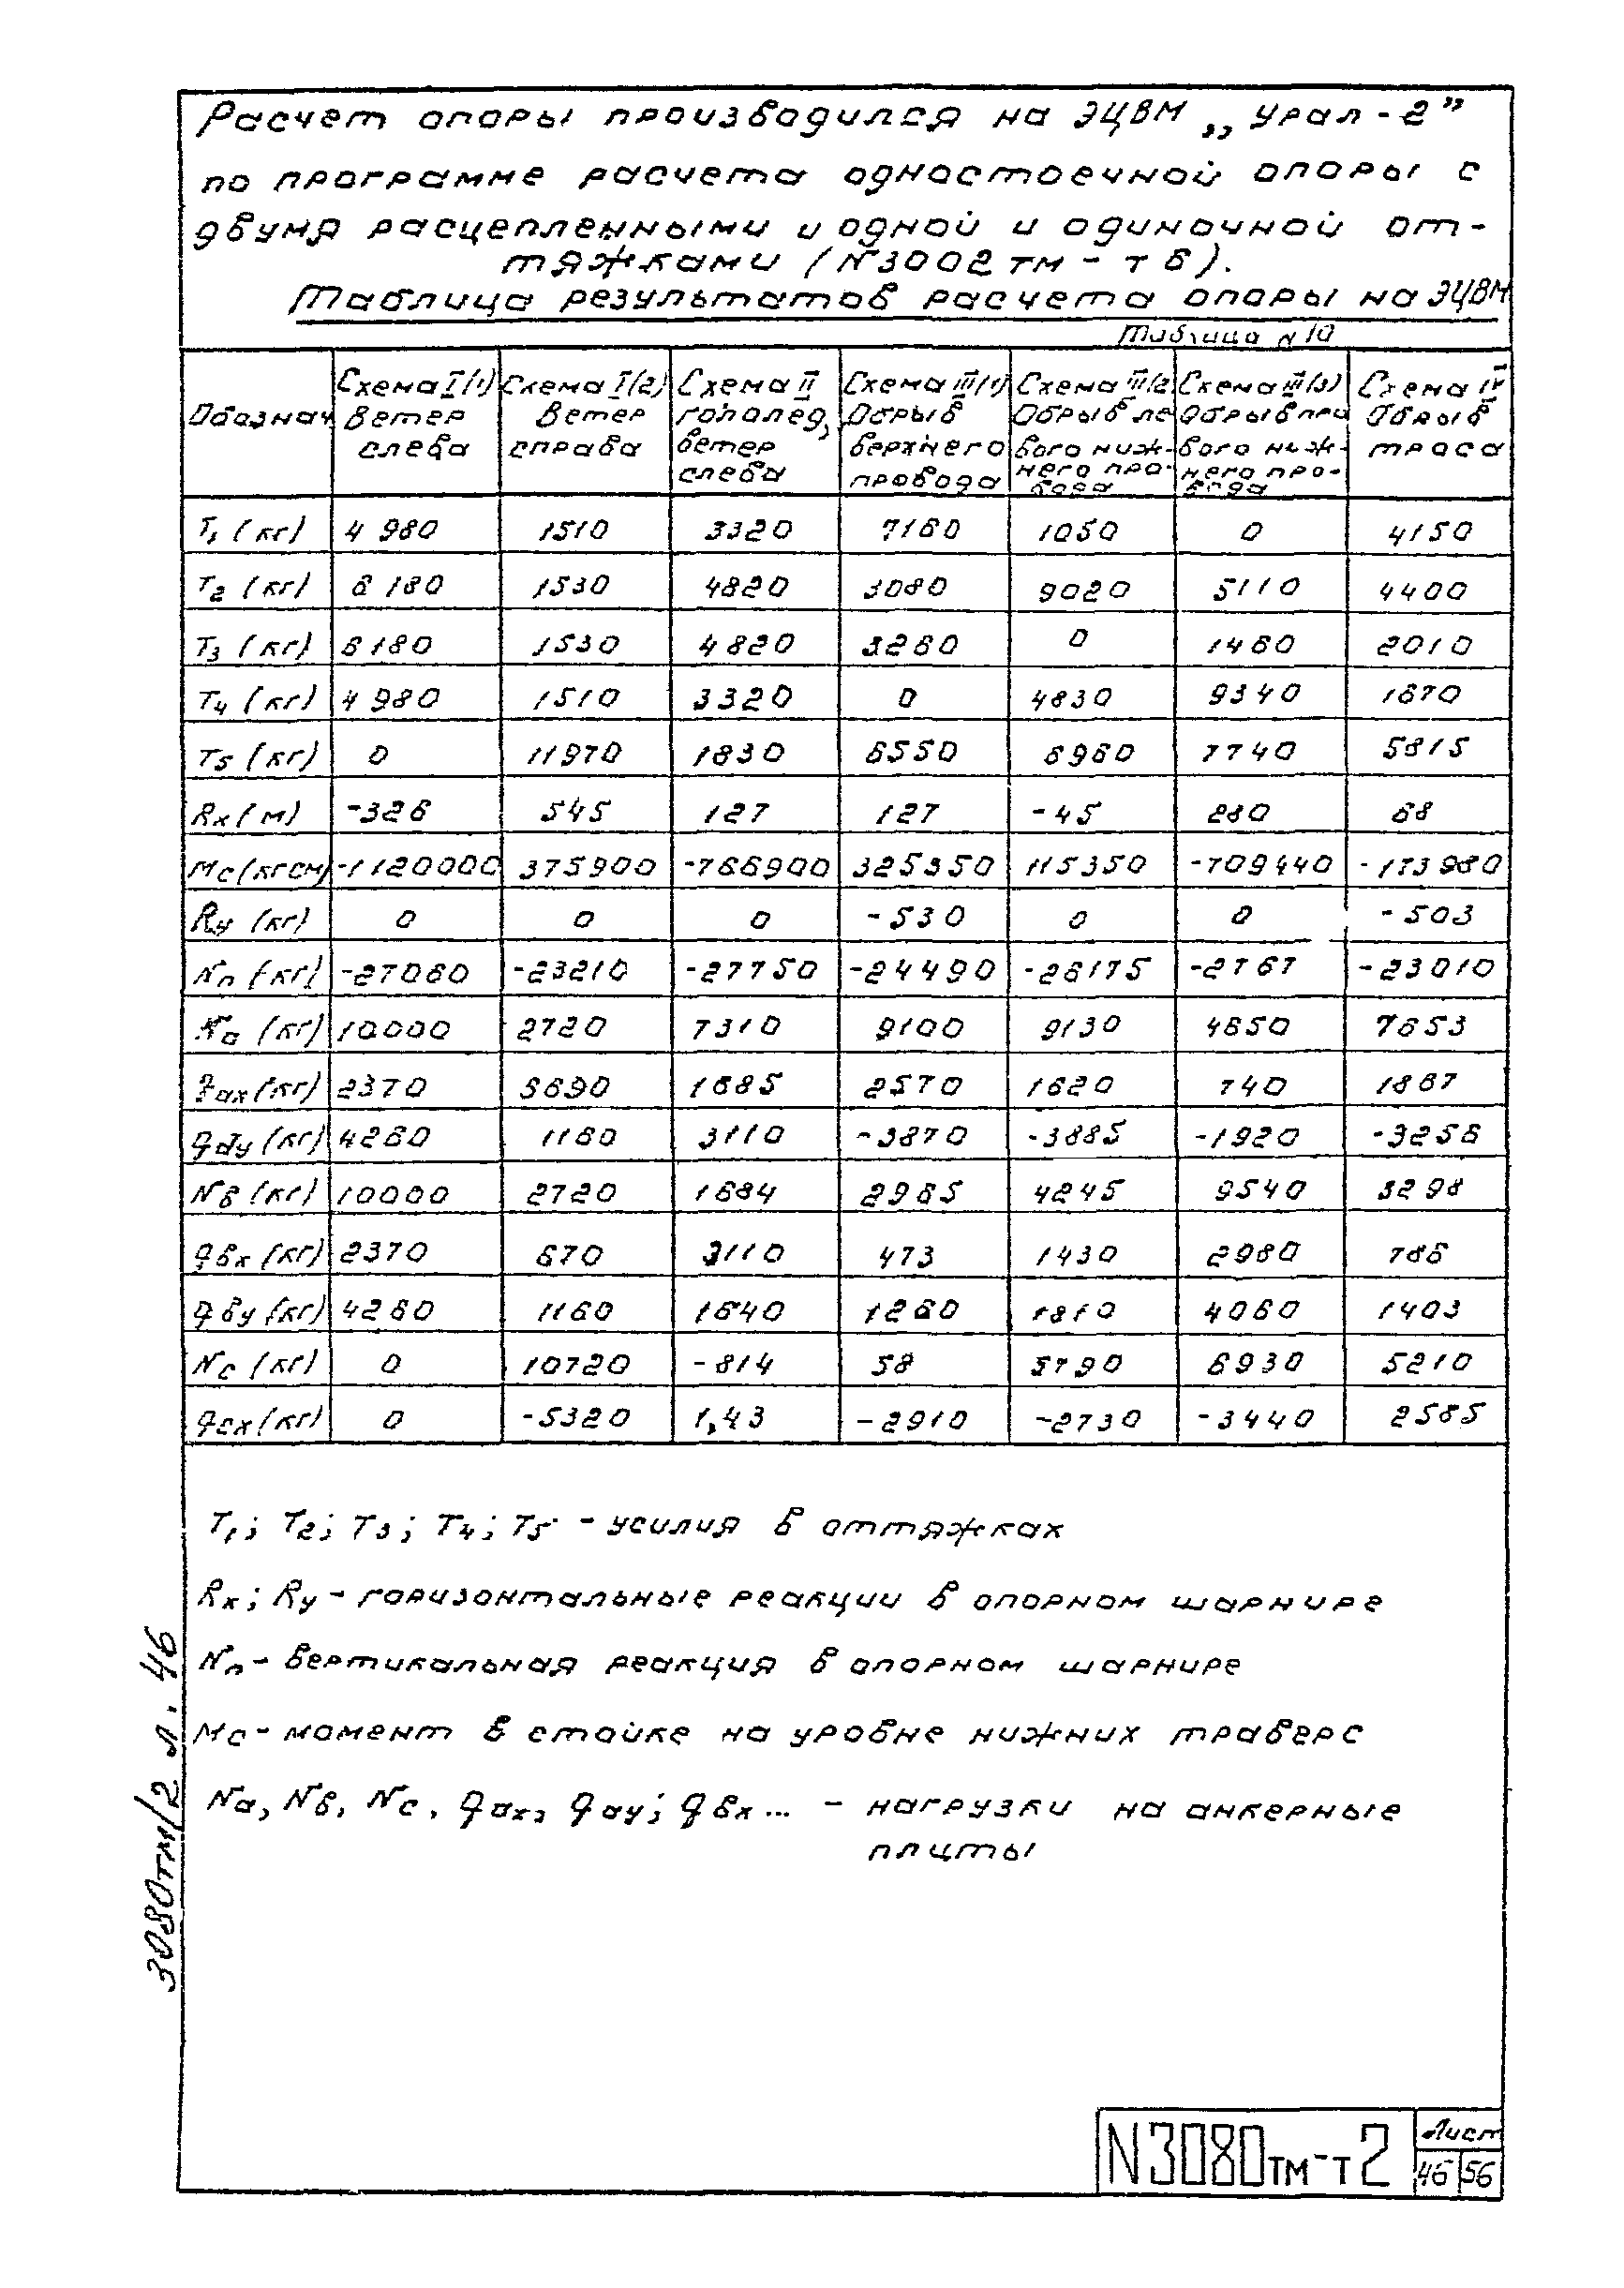 Расчет опоры производился на ЭЦВМ „Урал-2”
по программе расчета одностоечной опоры с
двумя расцепленными и одной и одиночной от-
тяжками (N3002тм-т6).
Таблица результатов расчета опоры на ЭЦВМ
Таблица N10
Обознач. | Схема I(1) Ветер слева | Схема I(2) Ветер справа | Схема II гололед, ветер слева | Схема III(1) Обрыв верхнего провода | Схема III(2) Обрыв левого нижнего провода | Схема III(3) Обрыв правого нижнего провода | Схема IV Обрыв троса
T1 (кг) 4980 1510 3320 7160 1050 0 4150
T2 (кг) 6180 1530 4820 3080 9020 5110 4400
T3 (кг) 6180 1530 4820 3260 0 1460 2010
T4 (кг) 4980 1510 3320 0 4830 9340 1670
T5 (кг) 0 11970 1830 6550 6960 7740 5815
Rx (м) -326 545 127 127 -45 280 68
Mc (кгсм) -1120000 375900 -766900 325350 115350 -709440 -173980
Ry (кг) 0 0 0 -530 0 0 -503
Nп (кг) -27060 -23210 -27750 -24490 -26175 -2767 -23010
Na (кг) 10000 2720 7310 9100 9130 4650 7653
qax (кг) 2370 5690 1685 2570 1620 740 1867
qay (кг) 4260 1160 3110 -3870 -3885 -1920 -3256
Nв (кг) 10000 2720 1684 2965 4245 9540 3298
qвx (кг) 2370 670 3110 473 1430 2980 786
qвy (кг) 4260 1160 1640 1260 1810 4060 1403
Nc (кг) 0 10720 -814 58 5790 6930 5210
qcx (кг) 0 -5320 1,43 -2910 -2730 -3440 2585
T1; T2; T3; T4; T5 - усилия в оттяжках
Rx; Ry - горизонтальные реакции в опорном шарнире
Nп - вертикальная реакция в опорном шарнире
Mc - момент в стойке на уровне нижних траверс
Na, Nв, Nc, qax, qay; qвx... - нагрузки на анкерные
плиты
3080тм/2 л. 46
N3080тм-т2
Лист
46 56